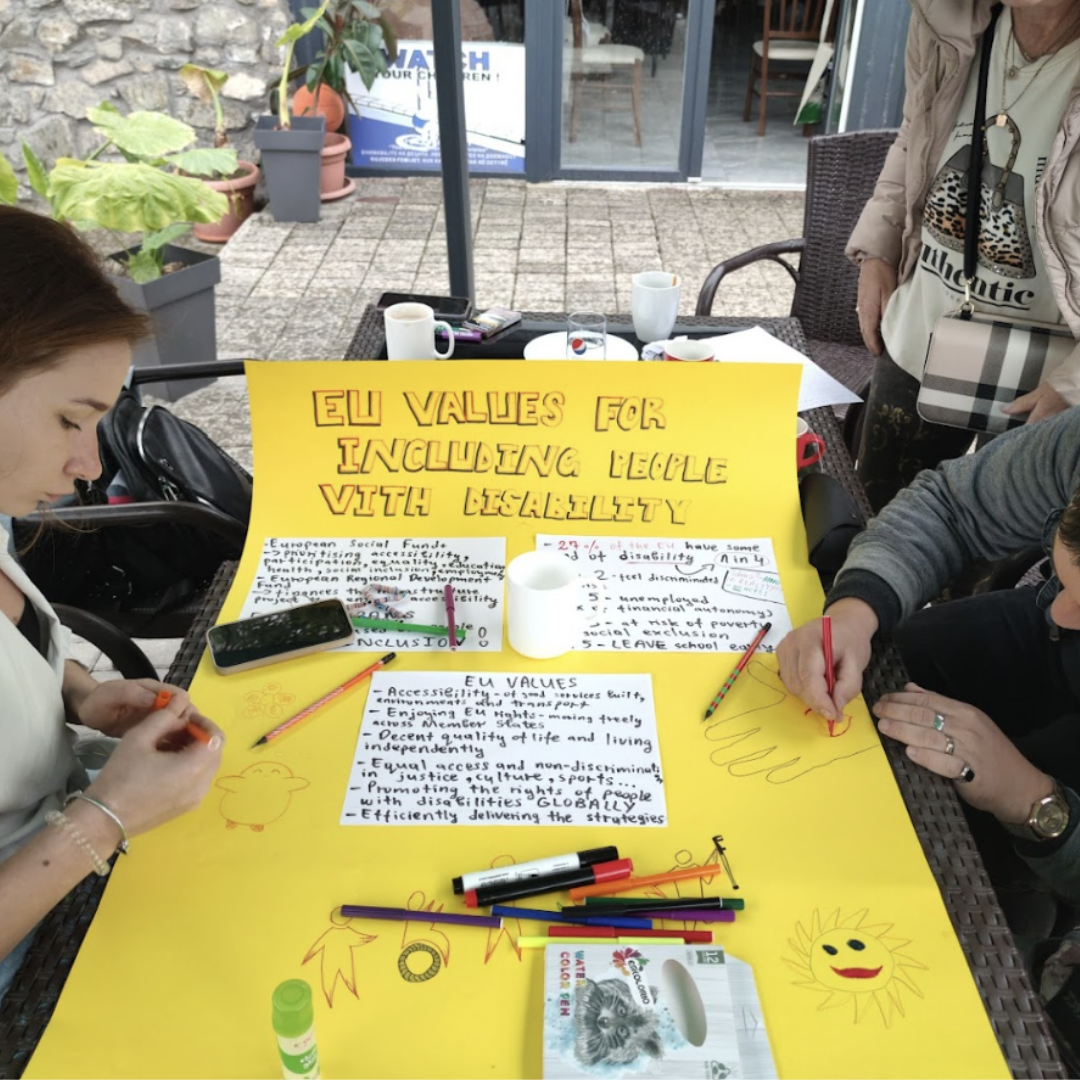 WATCH
YOUR CHILDREN !
Authentic
EU VALUES FOR
INCLUDING PEOPLE
VITH DISABILITY
- European Social Fund+
-> prioritising accessibility,
participation, equality, education
health, social inclusion, employment
- European Regional Development
Fund
-> finances the infrastructure
accessibility
INCLUSION !
- 27% of the EU have some
of disability
(1 in 4)
2 - feel discriminated
5 - unemployed
financial autonomy)
5 - at risk of poverty
social exclusion
5 - LEAVE school early
EU VALUES
- Accessibility - of good services built,
environments and transport
- Enjoying EU rights - moving freely
across Member States
- Decent quality of life and living
independently
- Equal access and non-discriminati
in justice, culture, sports...
- Promoting the rights of people
with disabilities GLOBALLY
- Efficiently delivering the strategies
WATER
COLOR PEN
12